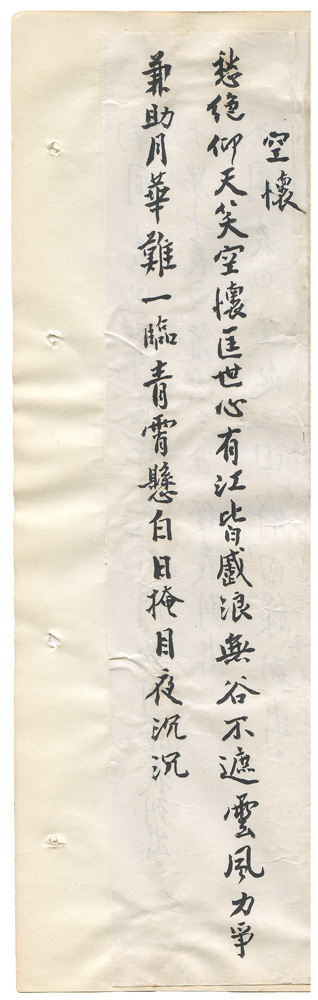 空懷
愁絶仰天笑空懷匡世心有江皆戲浪無谷不遮雲風力爭
兼助月華難一臨青霄懸白日掩目夜沉沉